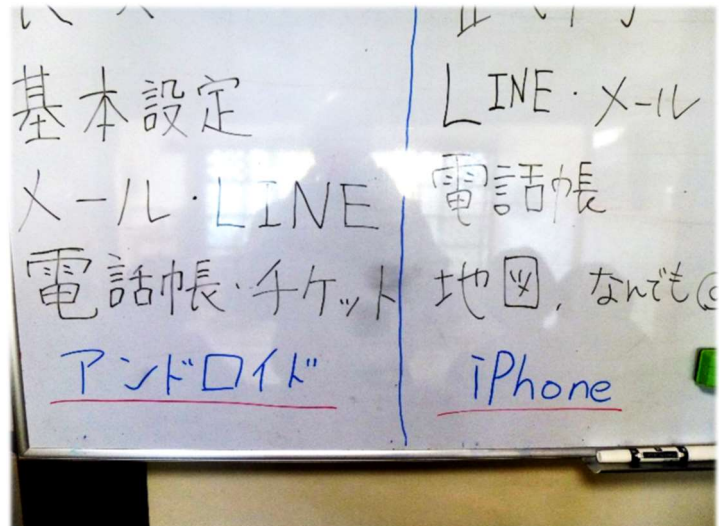 基本設定
メール・LINE
電話帳・チケット
アンドロイド
LINE・メール
電話帳
地図、なんでも
iPhone